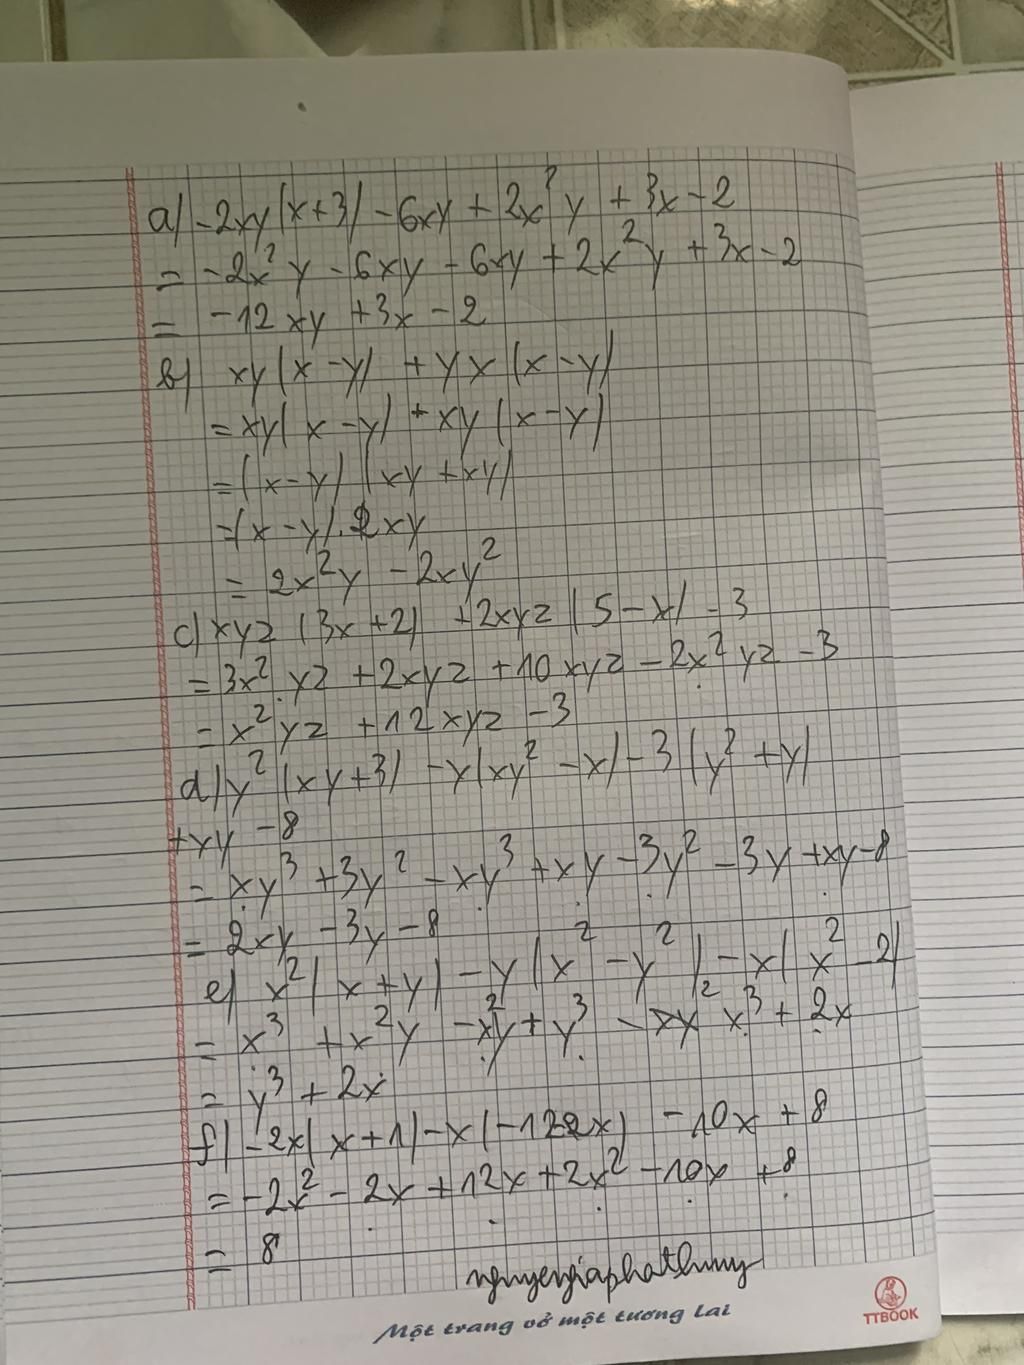 a) -2xy(x+3) - 6xy + 2x²y + 3x - 2
= -2x²y - 6xy - 6xy + 2x²y + 3x - 2
= -12xy + 3x - 2
b) xy(x-y) + yx(x-y)
= xy(x-y) + xy(x-y)
= (x-y)(xy+xy)
= (x-y).2xy
= 2x²y - 2xy²
c) xyz(3x+2) + 2xyz(5-x) - 3
= 3x²yz + 2xyz + 10xyz - 2x²yz - 3
= x²yz + 12xyz - 3
d) y²(xy+3) - y(xy²-x) - 3(y²+y)
+xy - 8
= xy³ + 3y² - xy³ + xy - 3y² - 3y + xy - 8
= 2xy - 3y - 8
e) x²(x+y) - y(x²-y²) - x(x²-2)
= x³ + x²y - x²y + y³ - x³ + 2x
= y³ + 2x
f) -2x(x+1) - x(-12-2x) - 10x + 8
= -2x² - 2x + 12x + 2x² - 10x + 8
= 8
nguyengiaphathuny
Một trang vở một tương lai
TTBOOK